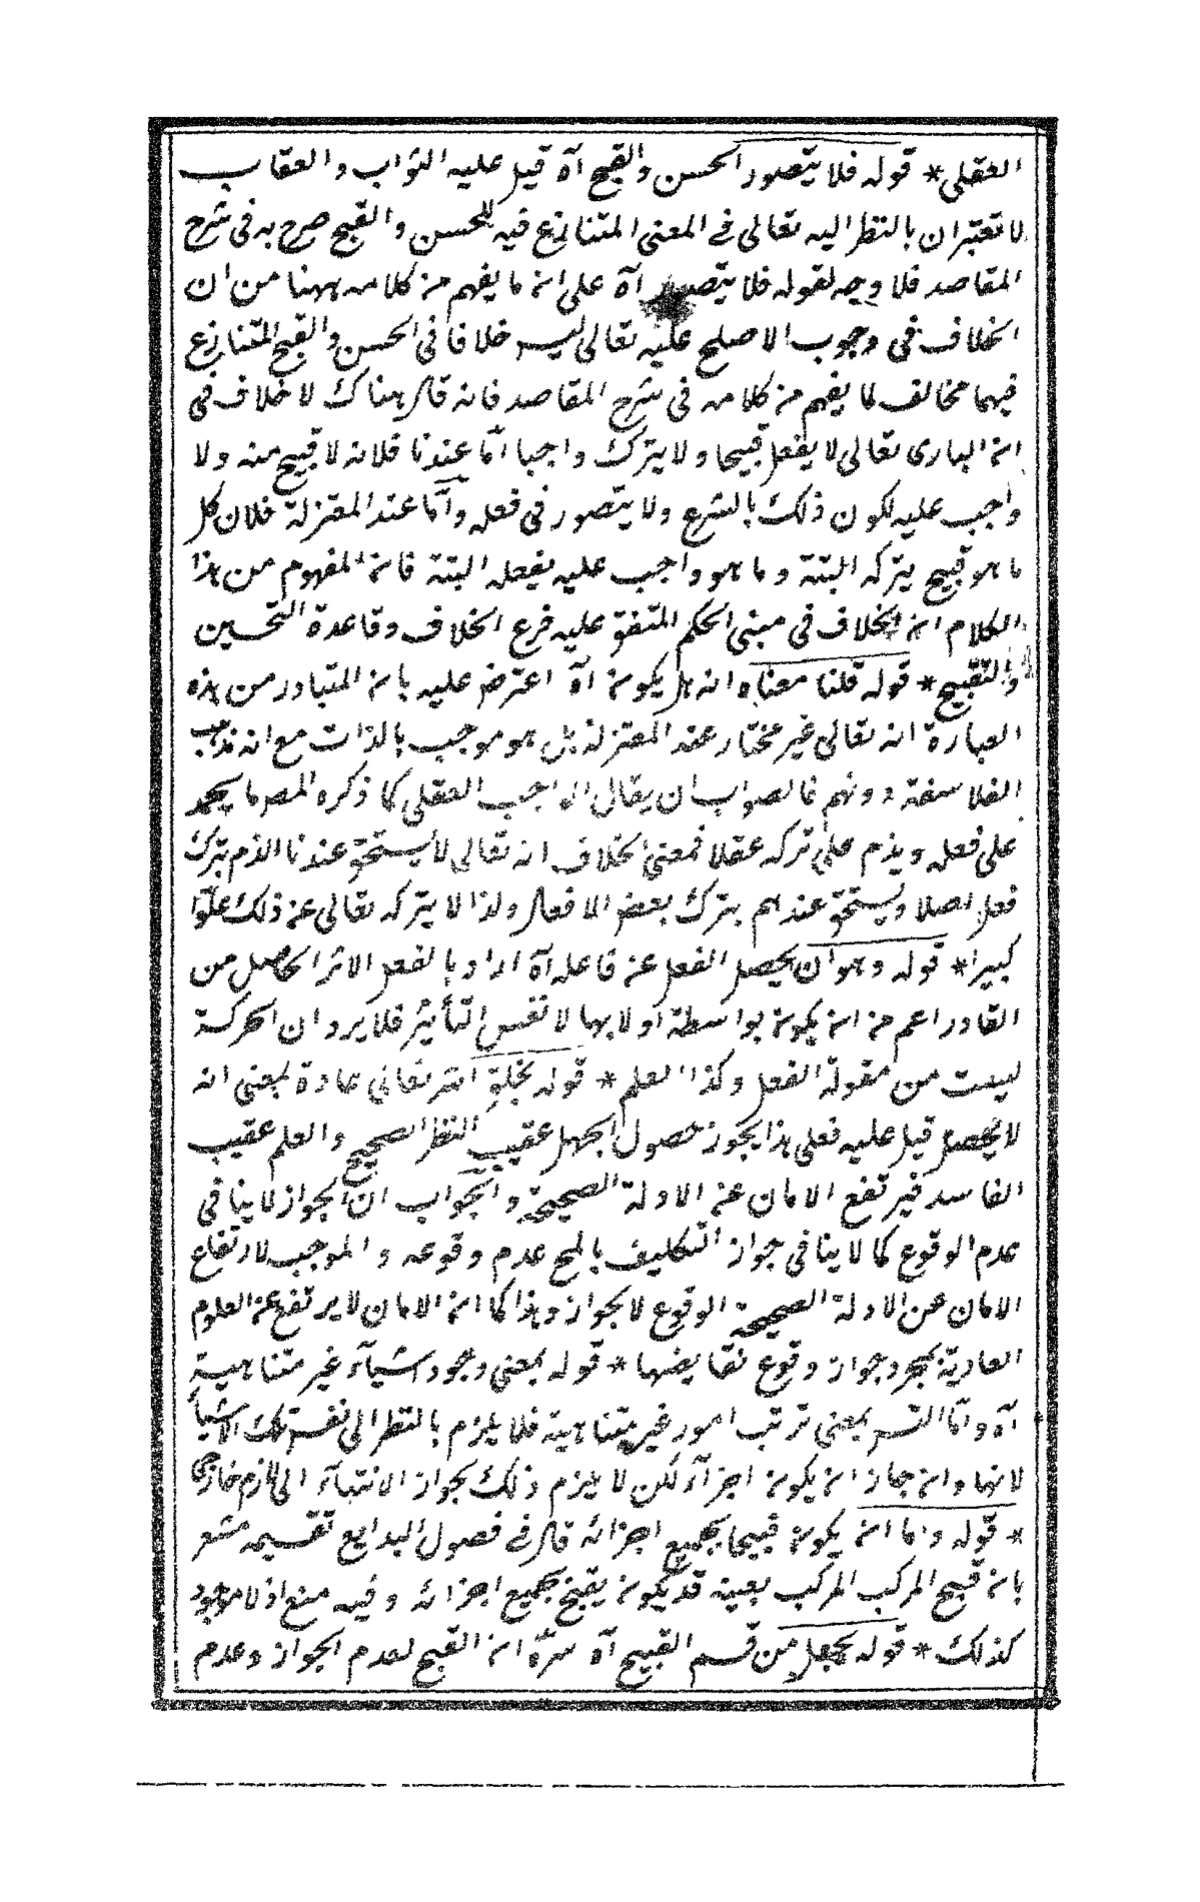 العقلي * قوله فلا يتصور الحسن والقبح آه قيل عليه الثواب والعقاب
لا تعتبران بالنظر اليه تعالى في المعنى المتنازع فيه للحسن والقبح صرح به في شرح
المقاصد فلا وجه لقوله فلا يتصور آه على ان ما يفهم من كلامه ههنا من ان
الخلاف في وجوب الاصلح عليه تعالى ليس خلافا في الحسن والقبح المتنازع
فيهما مخالف لما يفهم من كلامه في شرح المقاصد فانه قال هناك لا خلاف في
ان البارى تعالى لا يفعل قبيحا ولا يترك واجبا اما عندنا فلانه لا قبيح منه ولا
واجب عليه لكون ذلك بالشرع ولا يتصور في فعله واما عند المعتزلة فلان كل
ما هو قبيح يتركه البتة وما هو واجب عليه يفعله البتة فان المفهوم من هذا
الكلام ان الخلاف في مبنى الحكم المتفق عليه فرع الخلاف وقاعدة التحسين
والتقبيح * قوله قلنا معناه انه هل يكون آه اعترض عليه بان المتبادر من هذه
العبارة انه تعالى غير مختار عند المعتزلة بل هو موجب بالذات مع انه مذهب
الفلاسفة دونهم فالصواب ان يقال الواجب العقلي كما ذكره المص ما يحمد
على فعله ويذم على تركه عقلا فمعنى الخلاف انه تعالى لا يستحق عندنا الذم بترك
فعل اصلا ويستحق عندهم بترك بعض الافعال ولذا لا يتركه تعالى عن ذلك علوّا
كبيرا * قوله وهو ان يحصل الفعل عن فاعله آه اراد بالفعل الاثر الحاصل من
القادر اعم من ان يكون بواسطة او لا بها لا نفس التأثير فلا يرد ان الحركة
ليست من مقولة الفعل وكذا العلم * قوله بخلق الله تعالى عادة بمعنى انه
لا يحصل قيل عليه فعلى هذا يجوز حصول الجهل عقيب النظر الصحيح والعلم عقيب
الفاسد فيرتفع الامان عن الادلة الصحيحة والجواب ان الجواز لا ينافي
عدم الوقوع كما لا ينافي جواز التكليف بالمح عدم وقوعه والموجب لارتفاع
الامان عن الادلة الصحيحة الوقوع لا الجواز وهذا كما ان الامان لا يرتفع عن العلوم
العادية بمجرد جواز وقوع نقايضها * قوله بمعنى وجود اشيآء غير متناهية
آه واما التس بمعنى ترتب امور غير متناهية فلا يلزم بالنظر الى نفس تلك الاشيأ
لانها وان جاز ان يكون اجزآء لكن لا يلزم ذلك بجواز الانتهآء الى لازم خارجي
* قوله واما ان يكون قبيحا بجميع اجزائه قال في فصول البدايع تقسيمه مشعر
بان قبيح المركب المركب بعينه قد يكون يقبح بجميع اجزائه وفيه منع اذ لا موجود
كذلك * قوله يجعل من قسم القبيح آه سرّه ان القبح لعدم الجواز وعدم